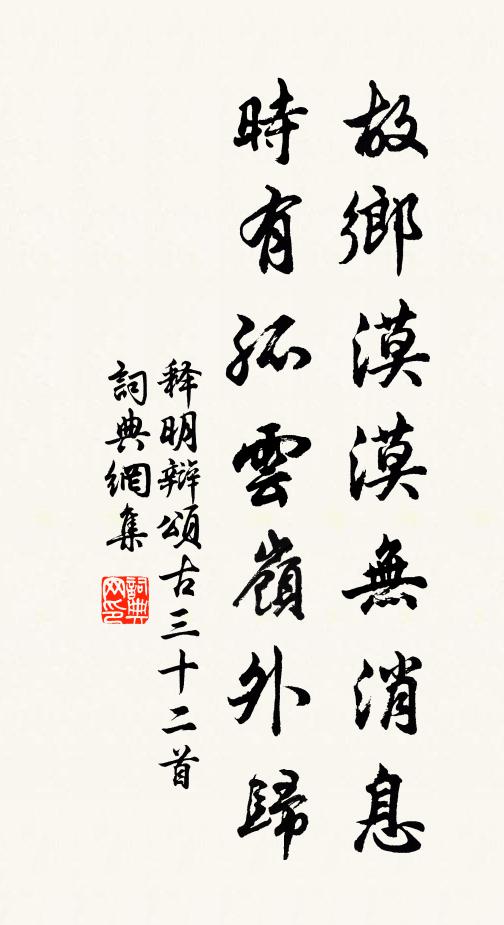 故鄉漠漠無消息
時有孤雲嶺外歸
释明辯頌古三十二首
詞典網集
詞典網印